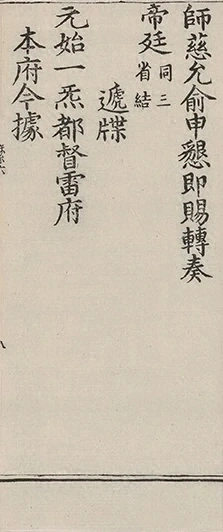 師慈允俞申懇即賜轉奏
帝廷同三省結
遞牒
元始一炁都督雷府
本府今據